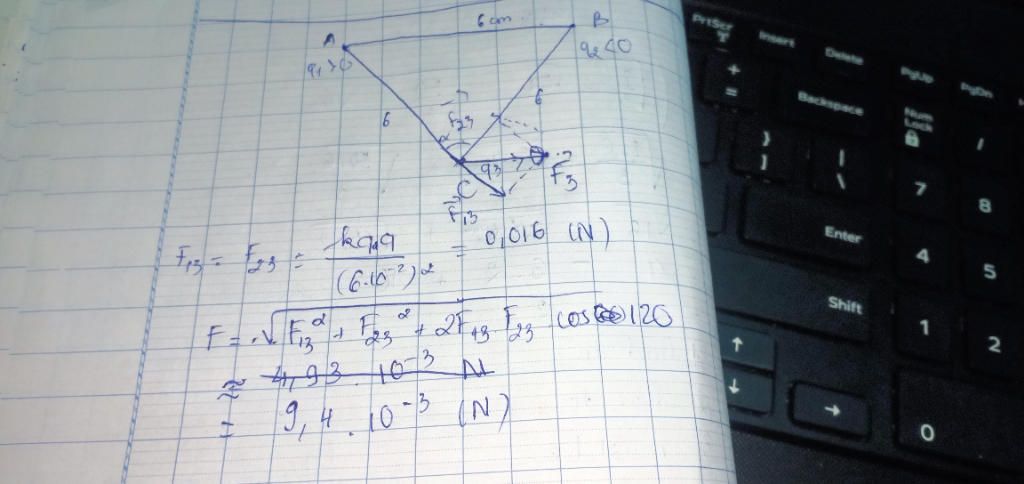 6 cm
A
B
q₁>0
q₂<0
6
6
F₂₃
α
q₃
C
F₃
F₁₃
F₁₃ = F₂₃ = kq₁q / (6.10⁻²)² = 0,016 (N)
F = √F₁₃² + F₂₃² + 2F₁₃.F₂₃ cos 120
≈ 4,93.10⁻³ N
= 9,4.10⁻³ (N)
PrtScr
Insert
Delete
PgUp
PgDn
+
=
Backspace
Num
Lock
/
}
]
|
\
7
8
Enter
4
5
Shift
1
2
↑
↓
→
0